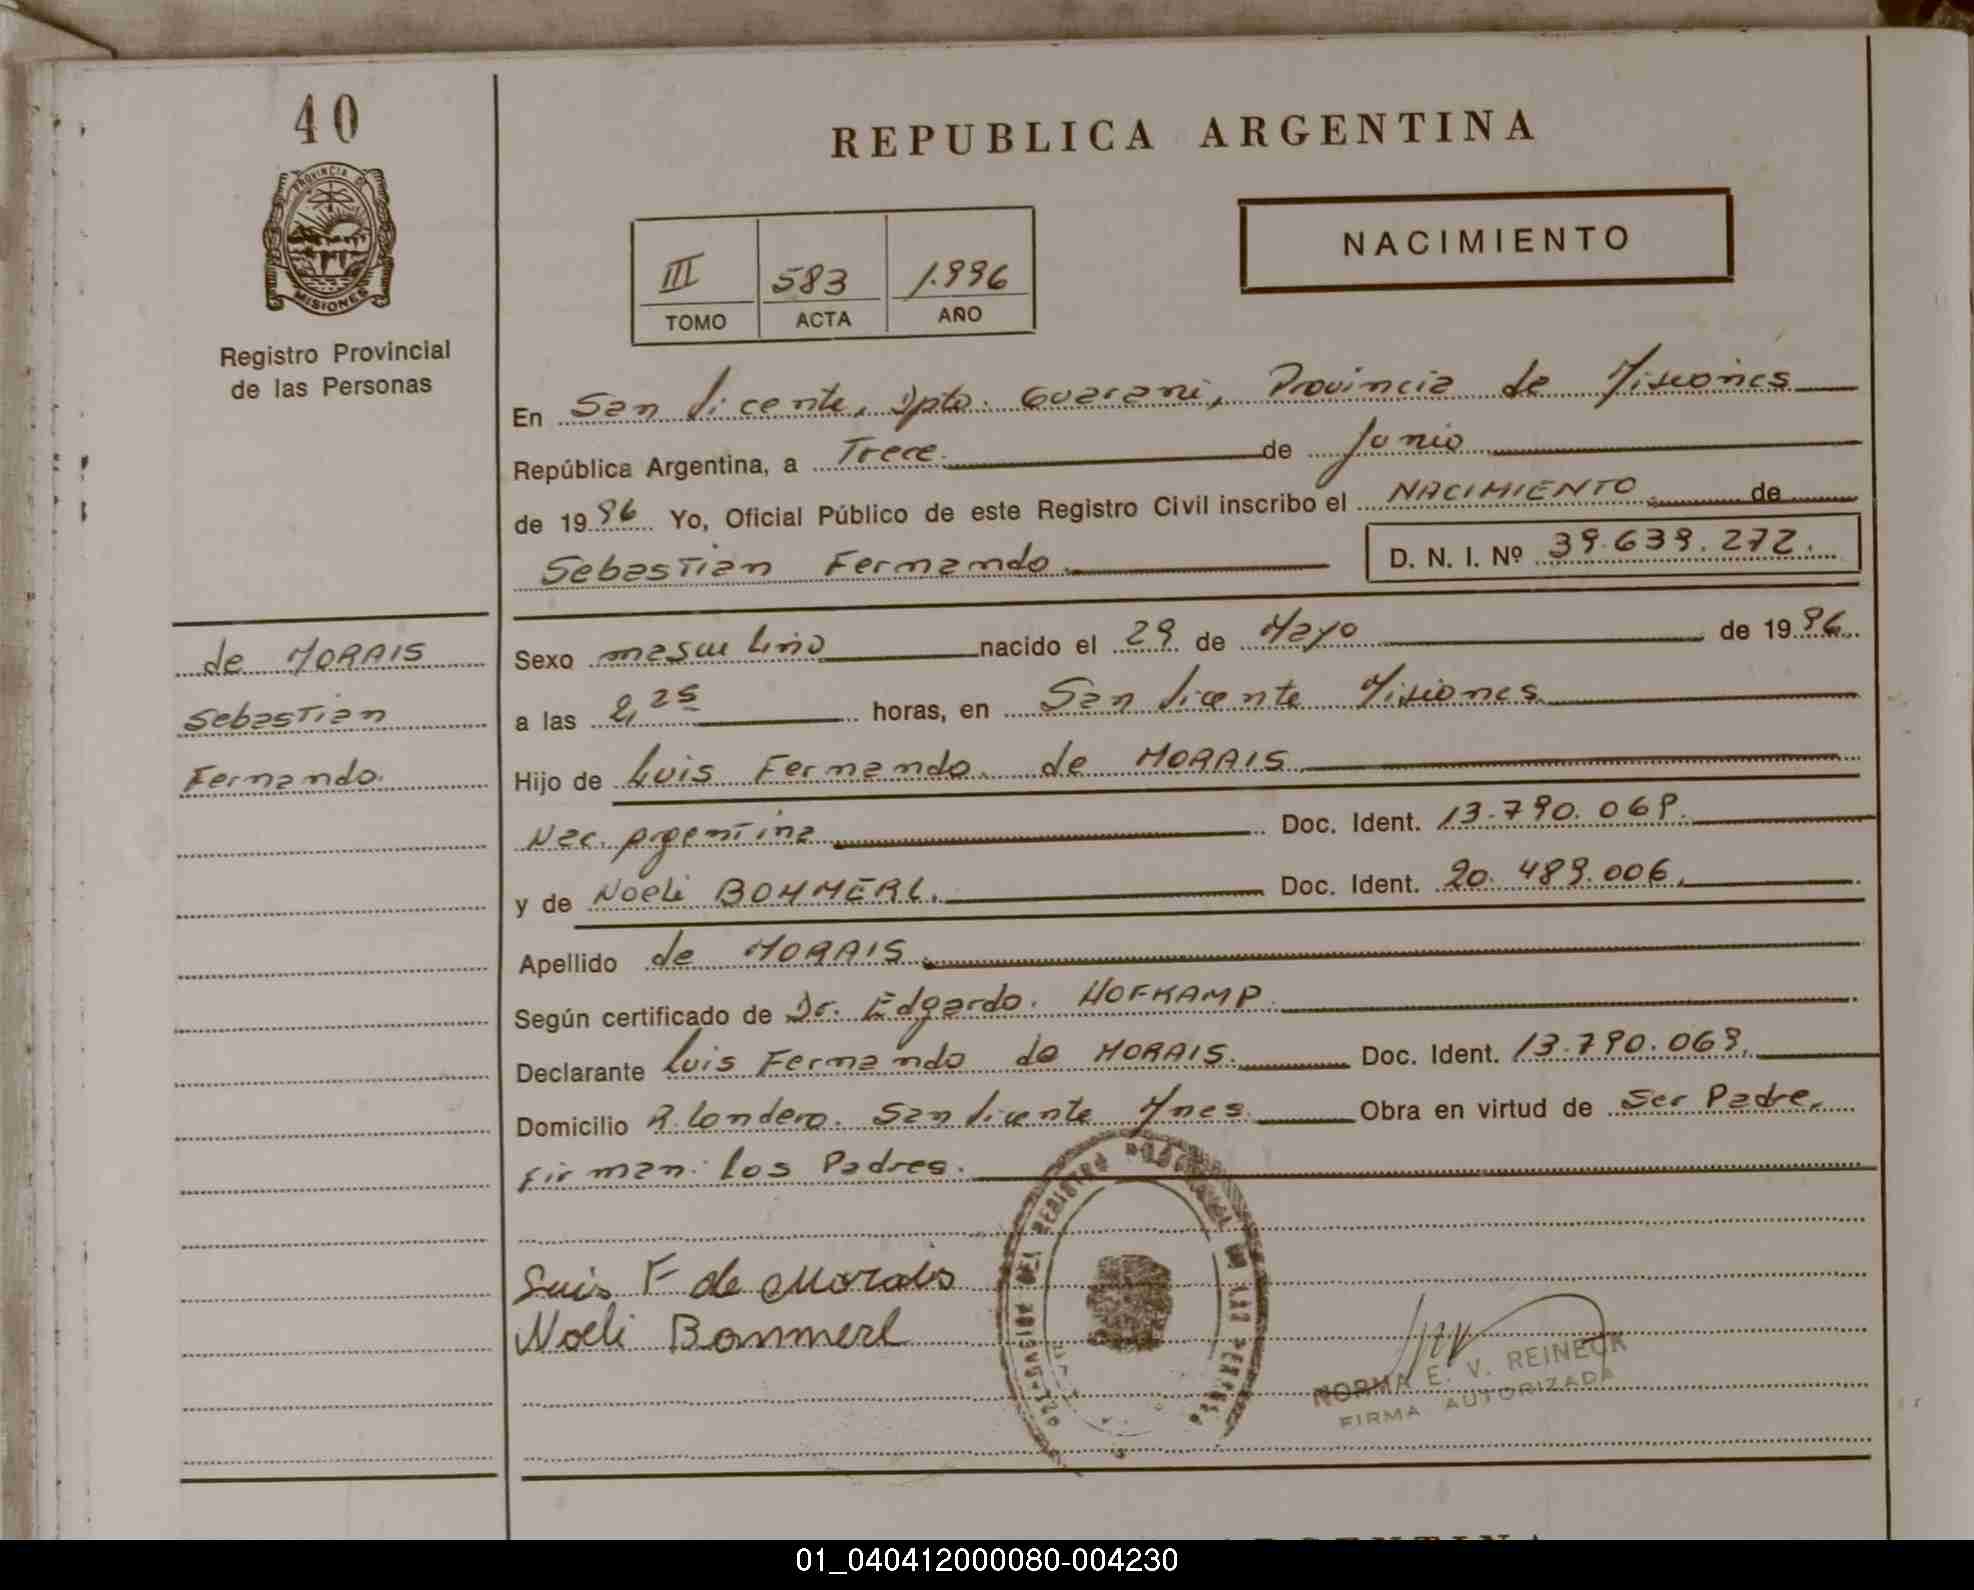 40
PROVINCIA DE
MISIONES
Registro Provincial
de las Personas
REPUBLICA ARGENTINA
NACIMIENTO
III 583 1.996
TOMO ACTA AÑO
En San Vicente, Dpto. Guarani, Provincia de Misiones
República Argentina, a Trece de Junio
de 1996 Yo, Oficial Público de este Registro Civil inscribo el NACIMIENTO de
Sebastian Fernando. D. N. I. Nº 39.639.272.
de MORAIS
Sebastian
Fernando.
Sexo masculino nacido el 29 de Mayo de 1996.
a las 2,25 horas, en San Vicente Misiones
Hijo de Luis Fernando de MORAIS
Nac. Argentina Doc. Ident. 13.790.069.
y de Noeli BOMMERL. Doc. Ident. 20.489.006.
Apellido de MORAIS.
Según certificado de Dr. Edgardo. HOFKAMP.
Declarante Luis Fernando de MORAIS. Doc. Ident. 13.790.069.
Domicilio R. Londero. San Vicente Mnes. Obra en virtud de Ser Padre,
Firman: los Padres.
Luis F de Morais
Noeli Bommerl
REGISTRO PROVINCIAL DE LAS PERSONAS
NORMA E. V. REINECK
FIRMA AUTORIZADA
01_040412000080-004230